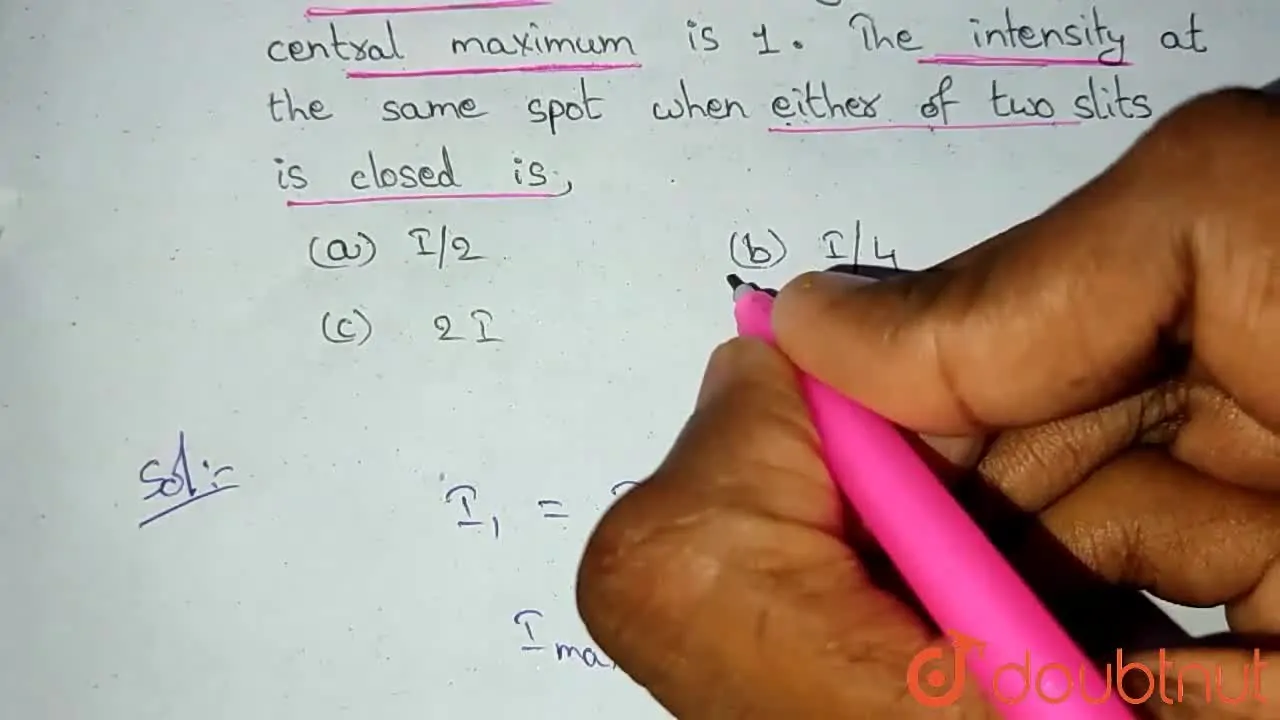 central maximum is 1. The intensity at
the same spot when either of two slits
is closed is,
(a) I/2 (b) I/4
(c) 2I
Sol:-
I₁ =
I max
doubtnut